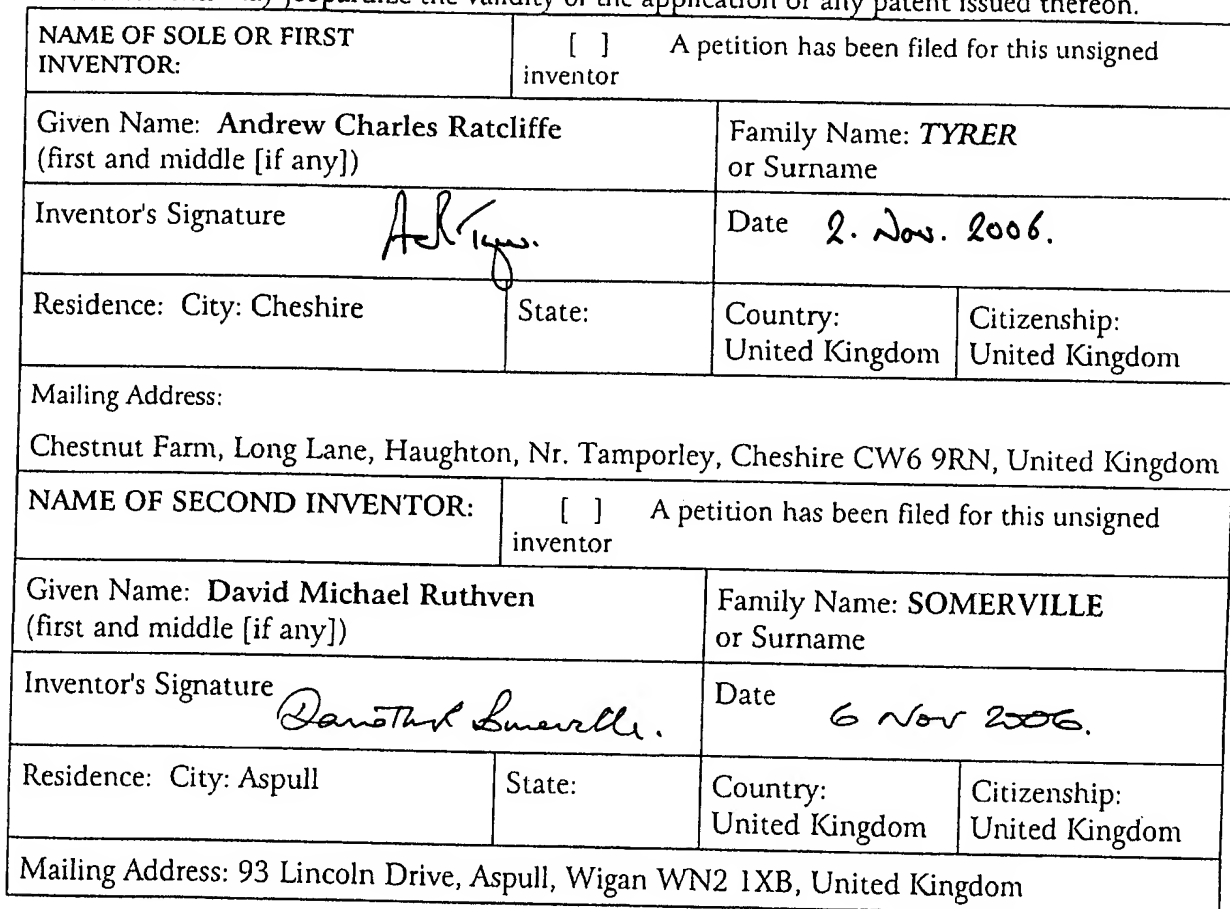 jeopardize the validity of the application or any patent issued thereon.
NAME OF SOLE OR FIRST
INVENTOR:
[ ] A petition has been filed for this unsigned
inventor
Given Name: Andrew Charles Ratcliffe
(first and middle [if any])
Family Name: TYRER
or Surname
Inventor's Signature
Date 2. Nov. 2006.
Residence: City: Cheshire
State:
Country:
United Kingdom
Citizenship:
United Kingdom
Mailing Address:
Chestnut Farm, Long Lane, Haughton, Nr. Tamporley, Cheshire CW6 9RN, United Kingdom
NAME OF SECOND INVENTOR:
[ ] A petition has been filed for this unsigned
inventor
Given Name: David Michael Ruthven
(first and middle [if any])
Family Name: SOMERVILLE
or Surname
Inventor's Signature
Date 6 Nov 2006.
Residence: City: Aspull
State:
Country:
United Kingdom
Citizenship:
United Kingdom
Mailing Address: 93 Lincoln Drive, Aspull, Wigan WN2 1XB, United Kingdom